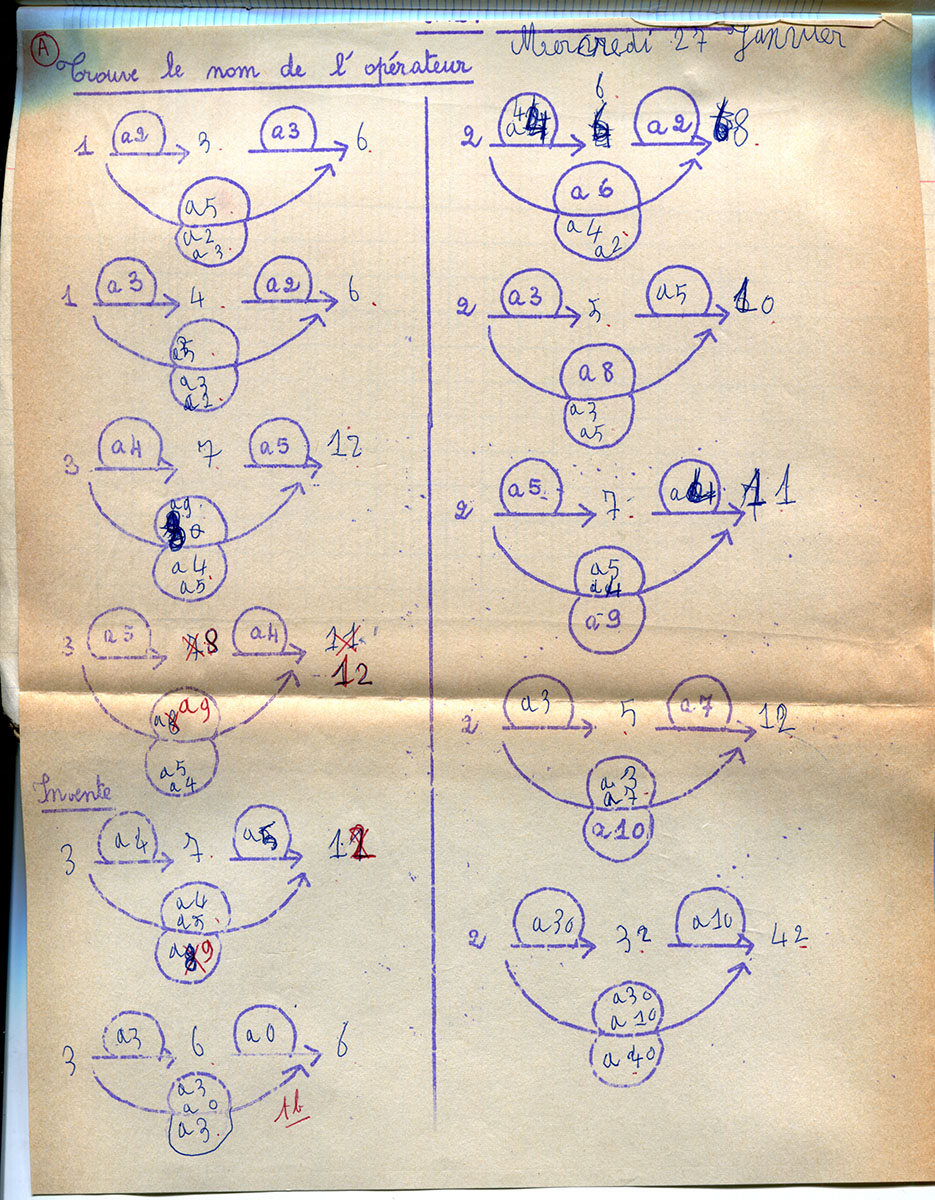 A
Mercredi 27 Janvier
Trouve le nom de l'opérateur
1 a2 3 a3 6
a5
a2
a3
1 a3 4 a2 6
a3
3 a4 7 a5 12
a9
a4
a5
3 a5 8 a4 11
12
a9
a5
a4
Invente
3 a4 7 a5 12
a4
a5
a9
3 a3 6 a0 6
a3
a0
a3
tb
6
2 a4 a2 8
a6
a4
a2
2 a3 5 a5 10
a8
a3
a5
2 a5 7 a4 11
a5
a4
a9
2 a3 5 a7 12
a3
a7
a10
2 a30 32 a10 42
a30
a10
a40